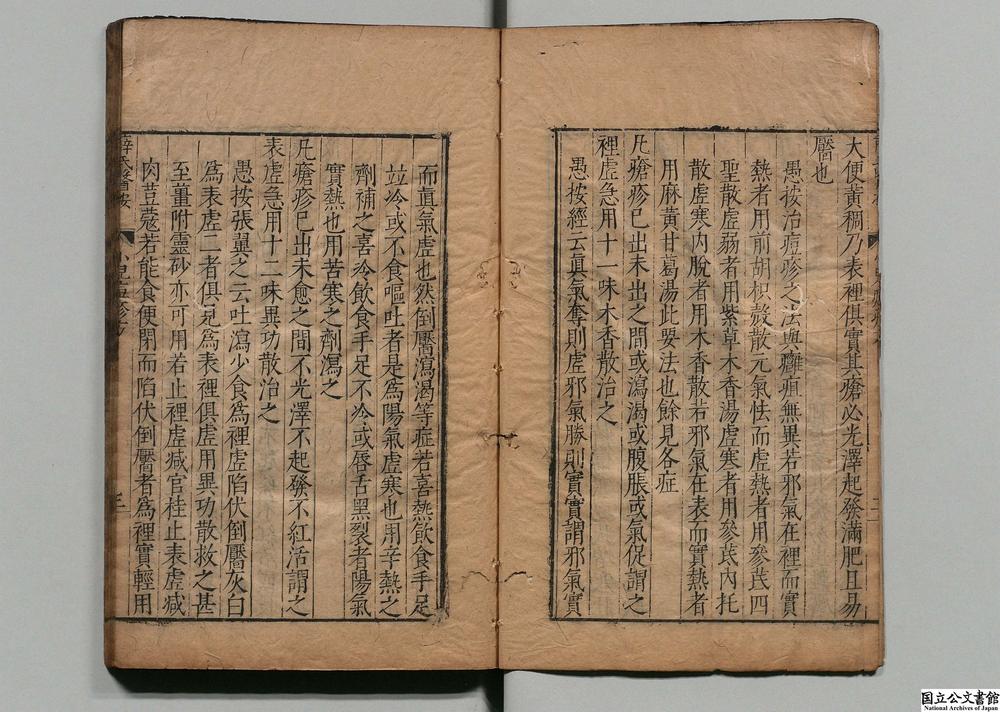 大便黃稠乃表裡俱實其瘡必光澤起發滿肥且易
靨也
愚按治痘疹之法與癰疽無異若邪氣在裡而實
熱者用前胡枳殼散元氣怯而虛熱者用參茋四
聖散虛弱者用紫草木香湯虛寒者用參茋內托
散虛寒內脫者用木香散若邪氣在表而實熱者
用麻黃甘葛湯此要法也餘見各症
凡瘡疹已出未出之間或瀉渴或腹脹或氣促謂之
裡虛急用十一味木香散治之
愚按經云眞氣奪則虛邪氣勝則實實謂邪氣實
而眞氣虛也然倒靨瀉渴等症若喜熱飲食手足
並冷或不食嘔吐者是爲陽氣虛寒也用辛熱之
劑補之喜冷飲食手足不冷或唇舌黑裂者陽氣
實熱也用苦寒之劑瀉之
凡瘡疹已出未愈之間不光澤不起發不紅活謂之
表虛急用十二味異功散治之
愚按張翼之云吐瀉少食爲裡虛陷伏倒靨灰白
爲表虛二者俱見爲表裡俱虛用異功散救之甚
至薑附靈砂亦可用若止裡虛減官桂止表虛減
肉荳蔻若能食便閉而陷伏倒靨者爲裡實輕用
薛氏醫按
國立公文書館
National Archives of Japan